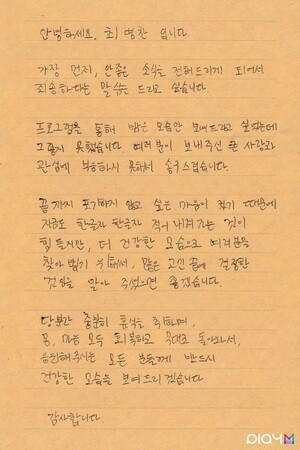 안녕하세요. 최병찬 입니다.
가장 먼저, 안좋은 소식을 전해드리게 되어서
죄송하다는 말씀을 드리고 싶습니다.
프로그램을 통해 밝은 모습만 보여드리고 싶었는데
그렇지 못했습니다 여러분이 보내주신 큰 사랑과
관심에 부응하지 못해서 송구스럽습니다.
끝까지 포기하지 않고 싶은 마음이 컸기 때문에
지금도 한글자 한글자 적어 내려가는 것이
힘들지만, 더 건강한 모습으로 여러분을
찾아 뵙기 위해서, 많은 고민 끝에 결정한
것임을 알아 주셨으면 좋겠습니다.
당분간 충분히 휴식을 취하며,
몸, 마음 모두 회복하고 돌아와서,
응원해주시는 모든 분들께 반드시
건강한 모습을 보여드리겠습니다
감사합니다.
PLAYM